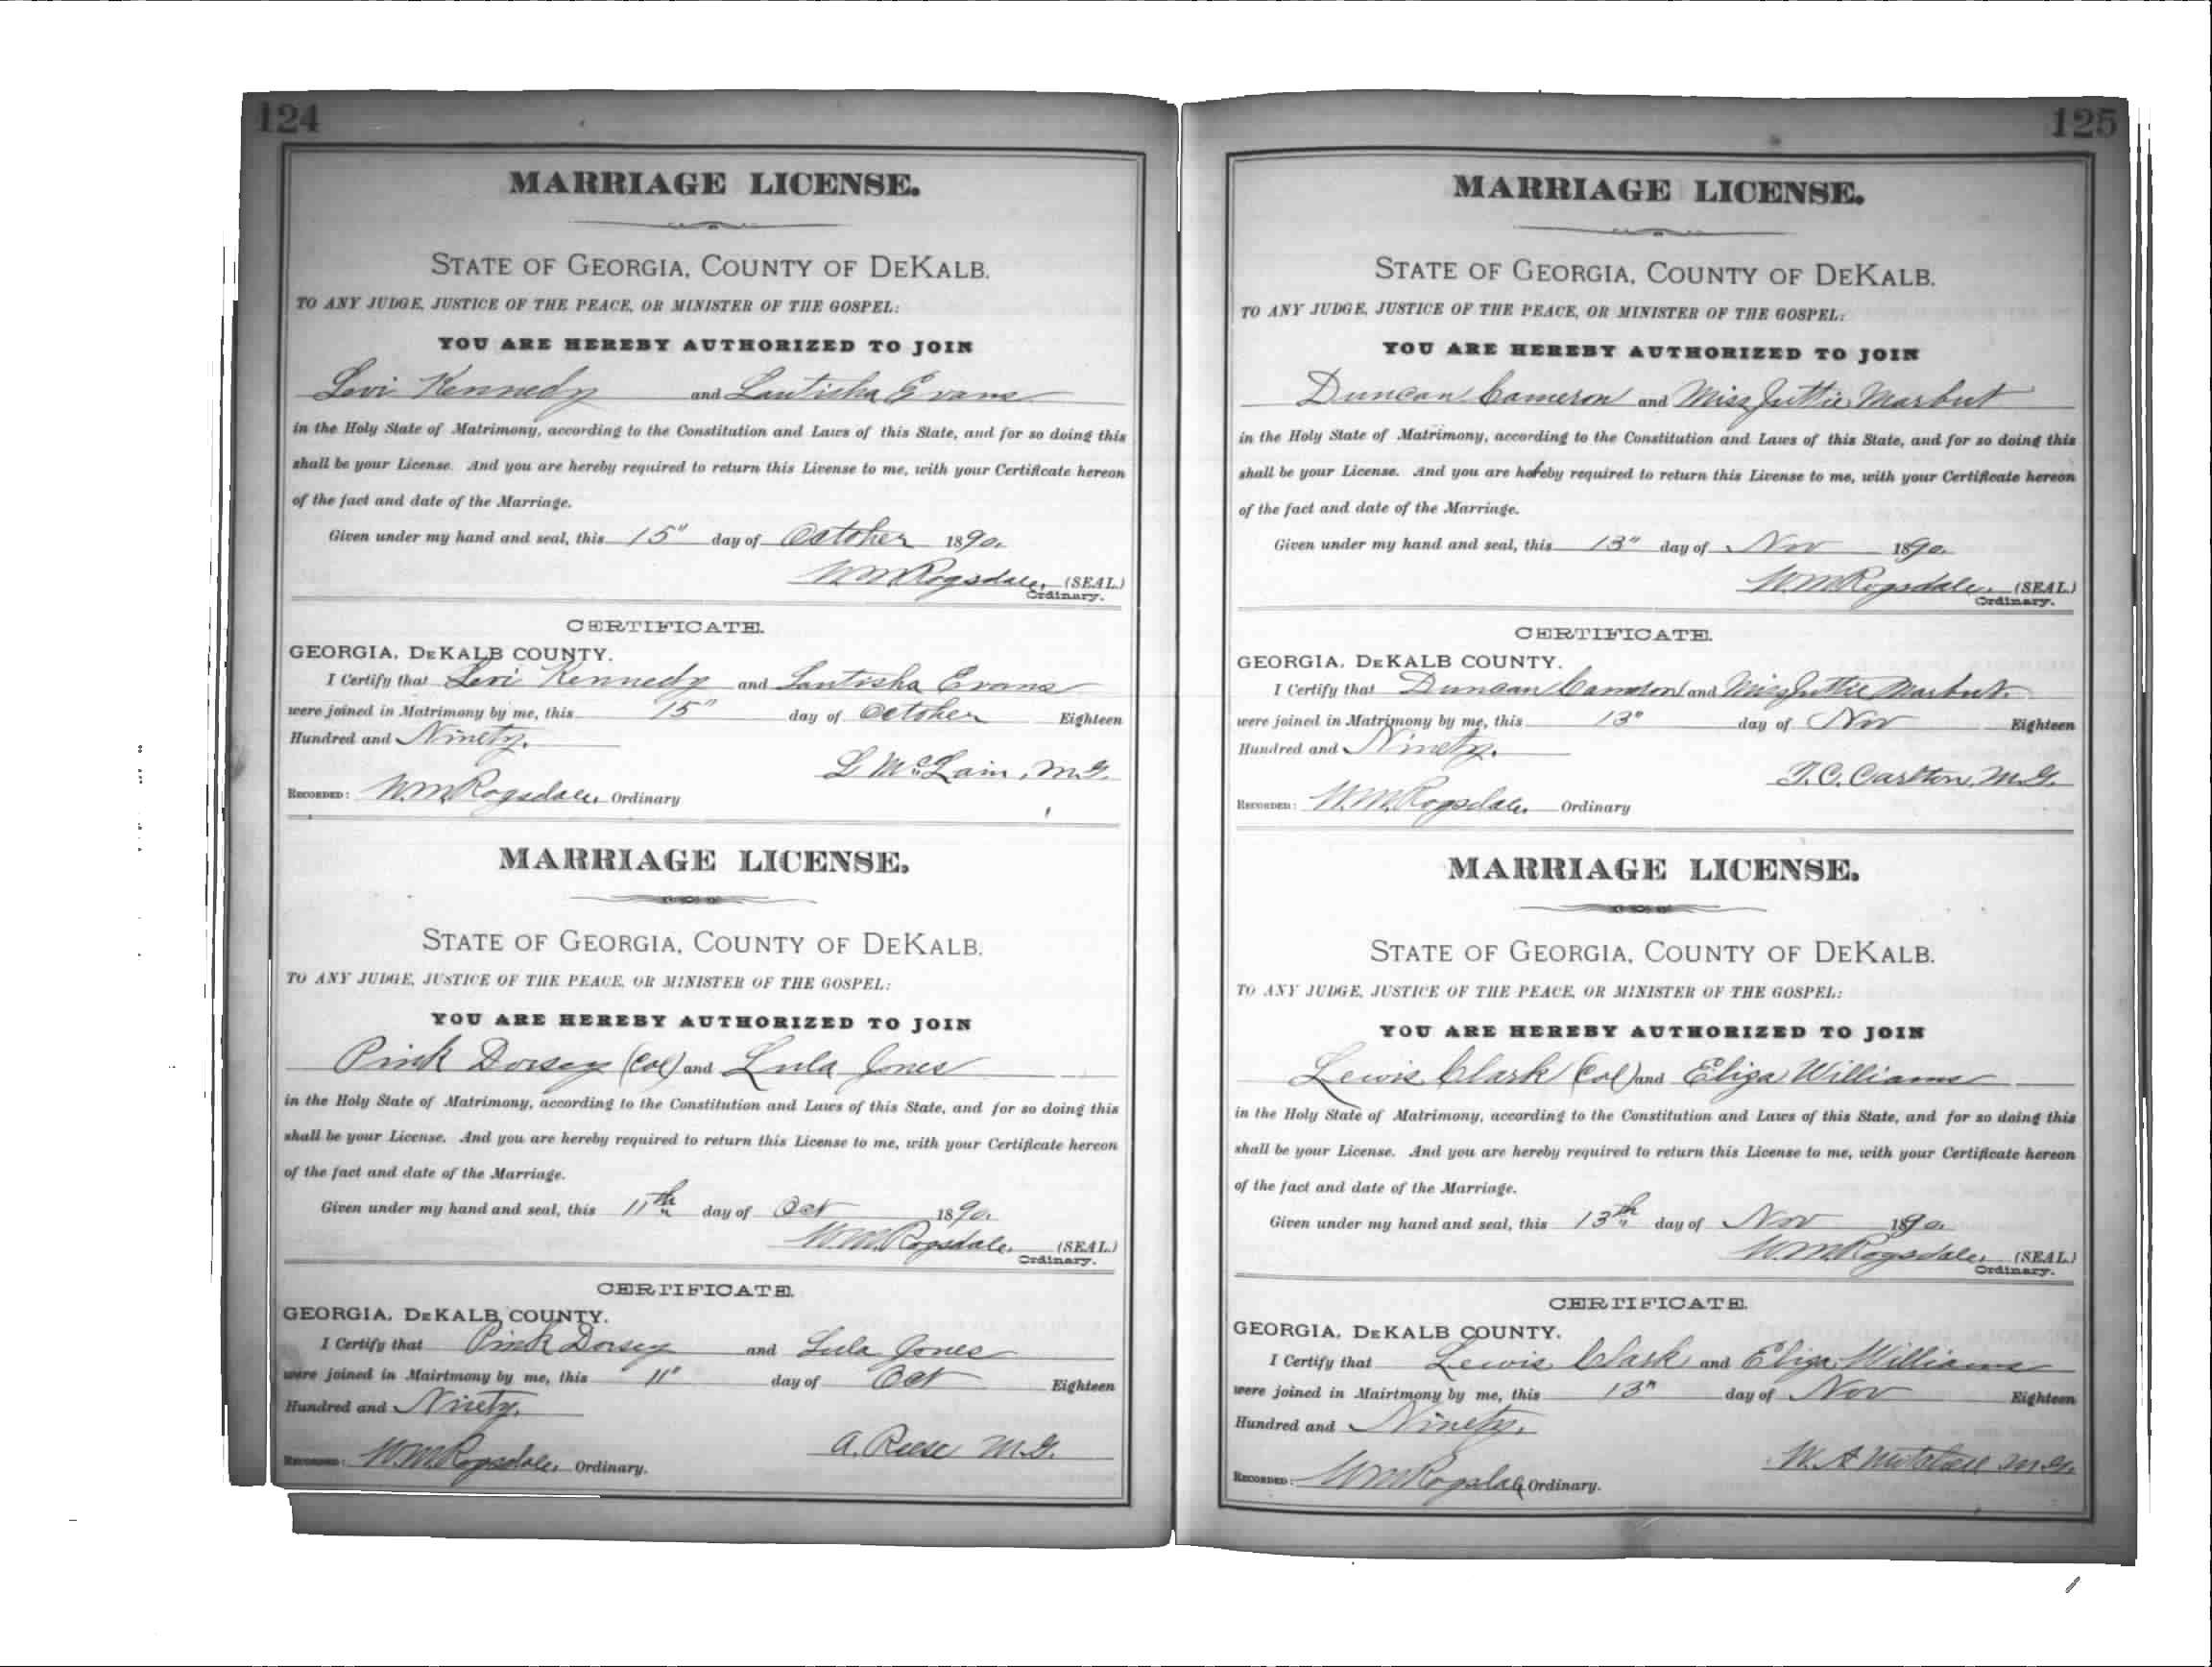 124
MARRIAGE LICENSE.
STATE OF GEORGIA, COUNTY OF DEKALB.
TO ANY JUDGE, JUSTICE OF THE PEACE, OR MINISTER OF THE GOSPEL:
YOU ARE HEREBY AUTHORIZED TO JOIN
Levi Kennedy and Lautisha Evans
in the Holy State of Matrimony, according to the Constitution and Laws of this State, and for so doing this
shall be your License. And you are hereby required to return this License to me, with your Certificate hereon
of the fact and date of the Marriage.
Given under my hand and seal, this 15" day of October 1890.
W M Ragsdale, (SEAL.)
Ordinary.
CERTIFICATE.
GEORGIA, DEKALB COUNTY.
I Certify that Levi Kennedy and Lautisha Evans
were joined in Matrimony by me, this 15" day of October Eighteen
Hundred and Ninety.
L McLain, M.G.
RECORDED: W.M. Ragsdale, Ordinary
MARRIAGE LICENSE.
STATE OF GEORGIA, COUNTY OF DEKALB.
TO ANY JUDGE, JUSTICE OF THE PEACE, OR MINISTER OF THE GOSPEL:
YOU ARE HEREBY AUTHORIZED TO JOIN
Pink Dorsey (Col) and Lula Jones
in the Holy State of Matrimony, according to the Constitution and Laws of this State, and for so doing this
shall be your License. And you are hereby required to return this License to me, with your Certificate hereon
of the fact and date of the Marriage.
Given under my hand and seal, this 11th day of Oct 1890.
W.M. Ragsdale, (SEAL.)
Ordinary.
CERTIFICATE.
GEORGIA, DEKALB COUNTY.
I Certify that Pink Dorsey and Lula Jones
were joined in Mairtmony by me, this 11" day of Oct Eighteen
Hundred and Ninety.
A. Reese M.G.
RECORDED: W.M. Ragsdale, Ordinary.
125
MARRIAGE LICENSE.
STATE OF GEORGIA, COUNTY OF DEKALB.
TO ANY JUDGE, JUSTICE OF THE PEACE, OR MINISTER OF THE GOSPEL:
YOU ARE HEREBY AUTHORIZED TO JOIN
Duncan Cameron and Miss Marbut
in the Holy State of Matrimony, according to the Constitution and Laws of this State, and for so doing this
shall be your License. And you are hereby required to return this License to me, with your Certificate hereon
of the fact and date of the Marriage.
Given under my hand and seal, this 13" day of Nov 1890.
W.M. Ragsdale, (SEAL.)
Ordinary.
CERTIFICATE.
GEORGIA, DEKALB COUNTY.
I Certify that Duncan Camelon and Miss Marbut.
were joined in Matrimony by me, this 13" day of Nov Eighteen
Hundred and Ninety.
T. C. Carlton, M.G.
RECORDED: W.M. Ragsdale, Ordinary
MARRIAGE LICENSE.
STATE OF GEORGIA, COUNTY OF DEKALB.
TO ANY JUDGE, JUSTICE OF THE PEACE, OR MINISTER OF THE GOSPEL:
YOU ARE HEREBY AUTHORIZED TO JOIN
Lewis Clark (Col) and Eliza Williams
in the Holy State of Matrimony, according to the Constitution and Laws of this State, and for so doing this
shall be your License. And you are hereby required to return this License to me, with your Certificate hereon
of the fact and date of the Marriage.
Given under my hand and seal, this 13th day of Nov 1890
W.M. Ragsdale, (SEAL.)
Ordinary.
CERTIFICATE.
GEORGIA, DEKALB COUNTY.
I Certify that Lewis Clark and Eliza Williams
were joined in Mairtmony by me, this 13" day of Nov Eighteen
Hundred and Ninety.
W. A M.G.
RECORDED: W M Ragsdale Ordinary.